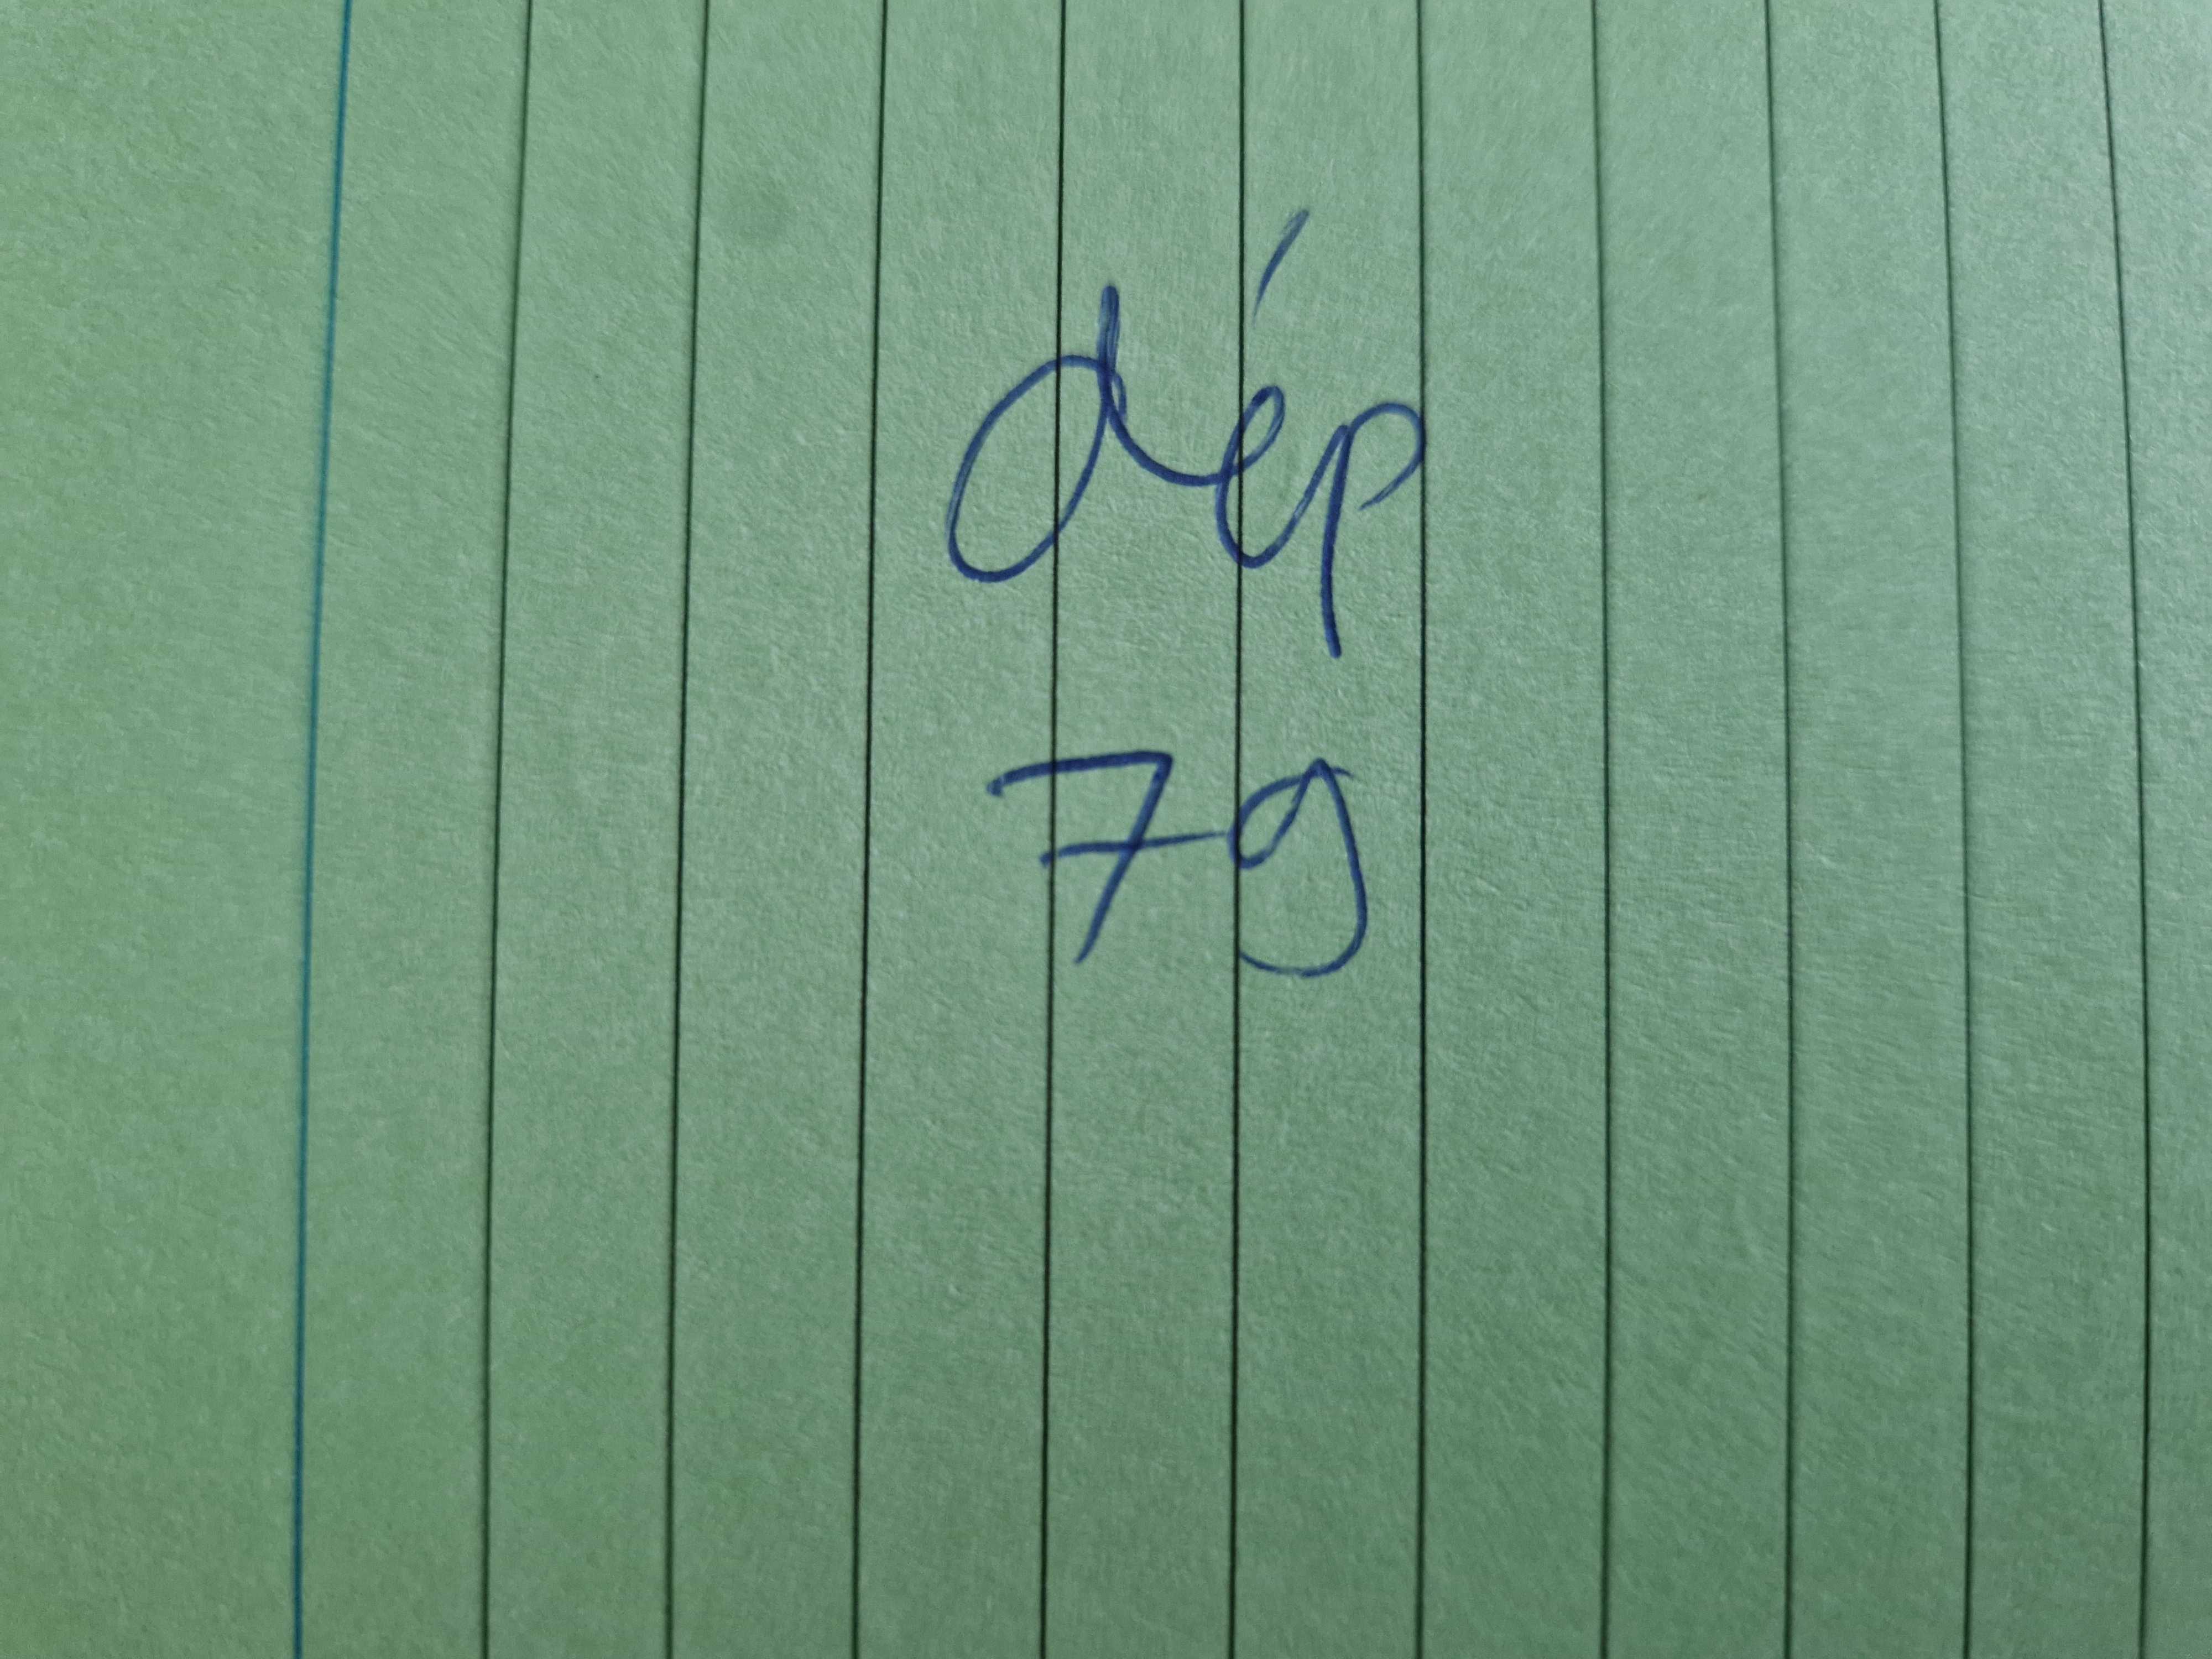 dép
79